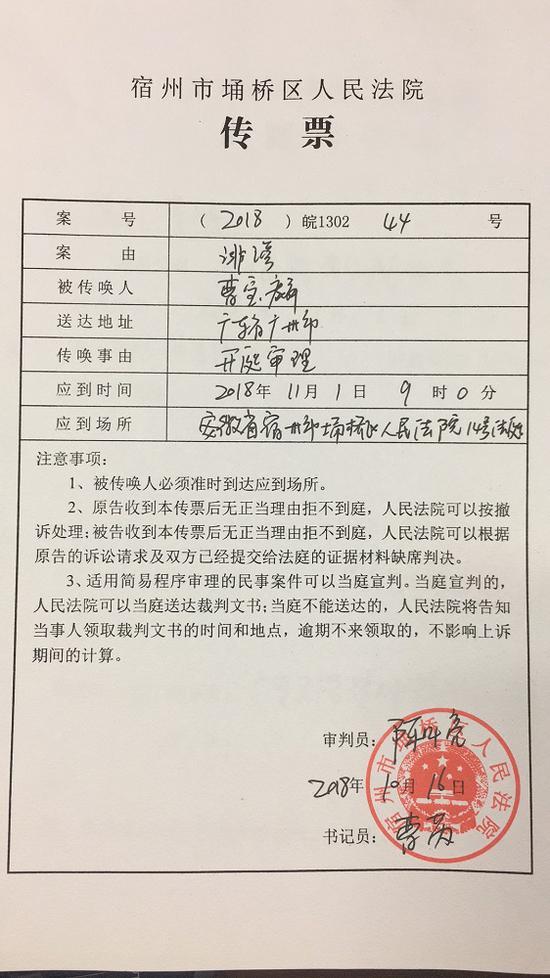 宿州市埇桥区人民法院
传 票
案 号 ( 2018 ) 皖1302 44 号
案 由 诽谤
被传唤人 曹
送达地址 广东省广州市
传唤事由 开庭审理
应到时间 2018年 11月 1 日 9 时 0 分
应到场所 安徽省宿州市埇桥区人民法院14号法庭
注意事项:
1、被传唤人必须准时到达应到场所。
2、原告收到本传票后无正当理由拒不到庭,人民法院可以按撤
诉处理;被告收到本传票后无正当理由拒不到庭,人民法院可以根据
原告的诉讼请求及双方已经提交给法庭的证据材料缺席判决。
3、适用简易程序审理的民事案件可以当庭宣判。当庭宣判的,
人民法院可以当庭送达裁判文书;当庭不能送达的,人民法院将告知
当事人领取裁判文书的时间和地点,逾期不来领取的,不影响上诉
期间的计算。
审判员:
2018年 10月 16日
书记员: 曹
宿州市埇桥区人民法院